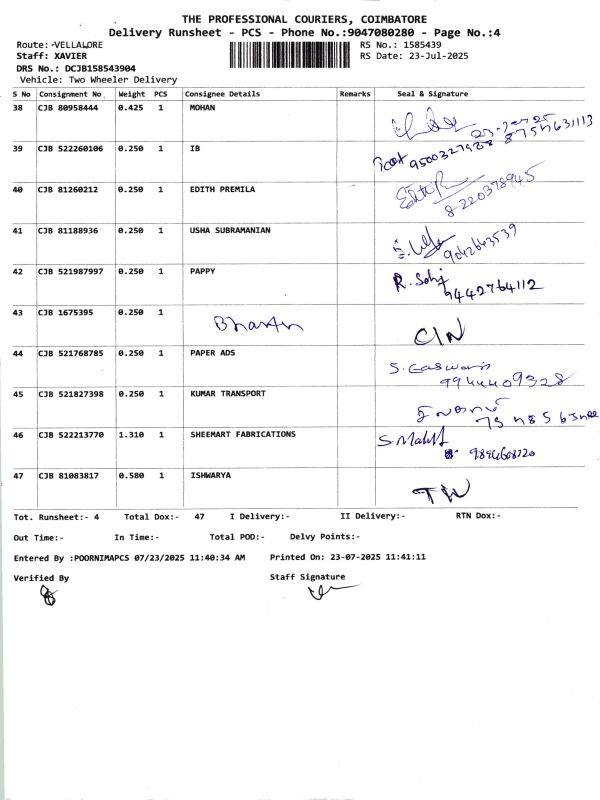 THE PROFESSIONAL COURIERS, COIMBATORE
Delivery Runsheet - PCS - Phone No.:9047080280 - Page No.:4
Route: -VELLALORE RS No.: 1585439
Staff: XAVIER RS Date: 23-Jul-2025
DRS No.: DCJB158543904
Vehicle: Two Wheeler Delivery
S No Consignment No Weight PCS Consignee Details Remarks Seal & Signature
38 CJB 80958444 0.425 1 MOHAN
39 CJB 522260106 0.250 1 IB
9500327988
40 CJB 81260212 0.250 1 EDITH PREMILA
8-220378945
41 CJB 81188936 0.250 1 USHA SUBRAMANIAN
9042643539
42 CJB 521987997 0.250 1 PAPPY R. Sohj
9442764112
43 CJB 1675395 0.250 1
CIN
44 CJB 521768785 0.250 1 PAPER ADS
9944409328
45 CJB 521827398 0.250 1 KUMAR TRANSPORT
46 CJB 522213770 1.310 1 SHEEMART FABRICATIONS
9894608120
47 CJB 81083817 0.580 1 ISHWARYA
Tot. Runsheet:- 4 Total Dox:- 47 I Delivery:- II Delivery:- RTN Dox:-
Out Time:- In Time:- Total POD:- Delvy Points:-
Entered By :POORNIMAPCS 07/23/2025 11:40:34 AM Printed On: 23-07-2025 11:41:11
Verified By Staff Signature